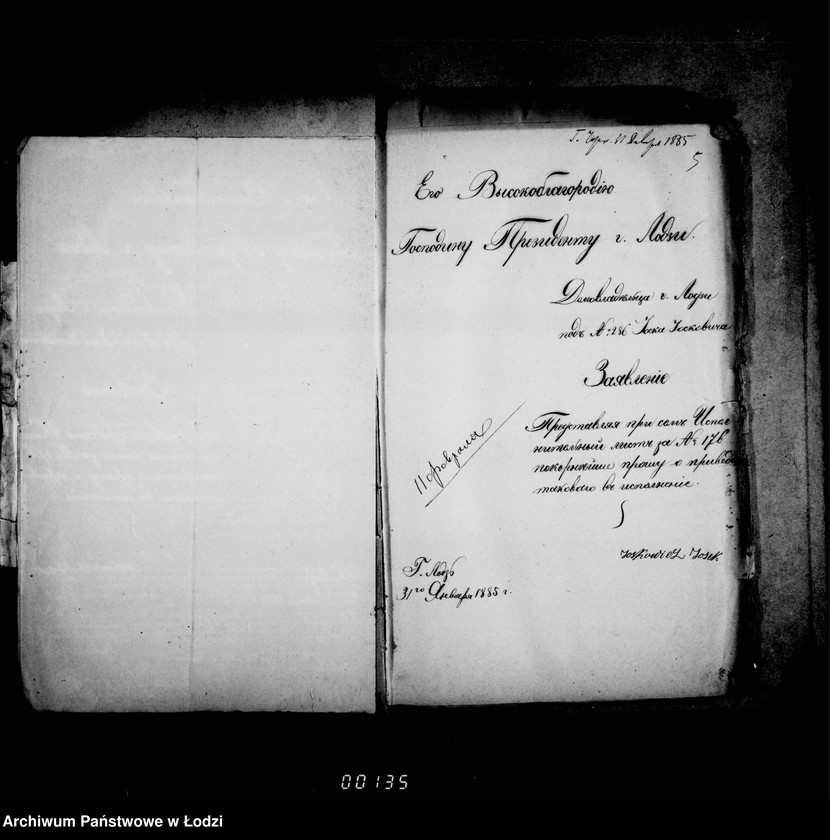 1885
5
Его Высокоблагородію
Господину Президенту г. Лодзи.
Домовладѣльца г. Лодзи
подъ № 286 Іоска Іосковича
Заявленіе
Представляя при семъ Испол
нительный листъ за № 176
покорнѣйше прошу о привед
таковаго въ исполненіе.
11 февраля
Joskowicz Josek
Г. Лодзь
31го Января 1885 г.
00135
Archiwum Państwowe w Łodzi